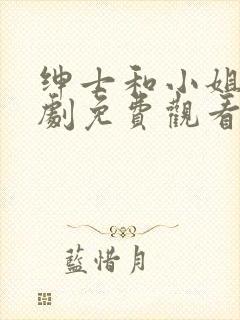 绅士和小姐
劇免費觀看
藍惜月